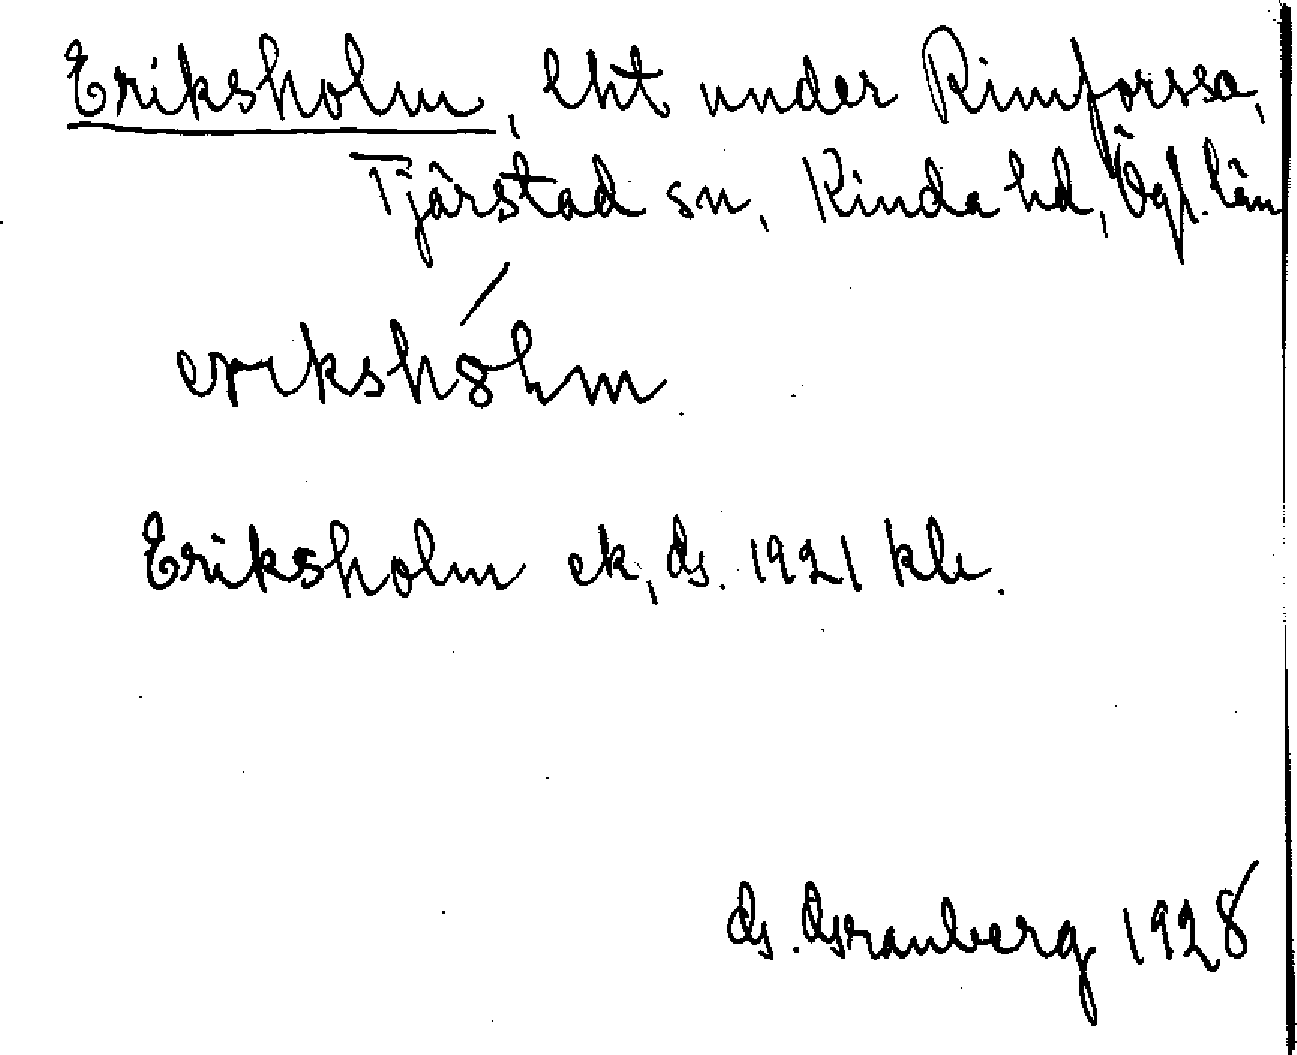 Eriksholm, lht under Rimforssa,
Tjärstad sn, Kinda hd, Ögl. län
Eriksholm ek, G. 1921 kle.
G. Granberg 1928